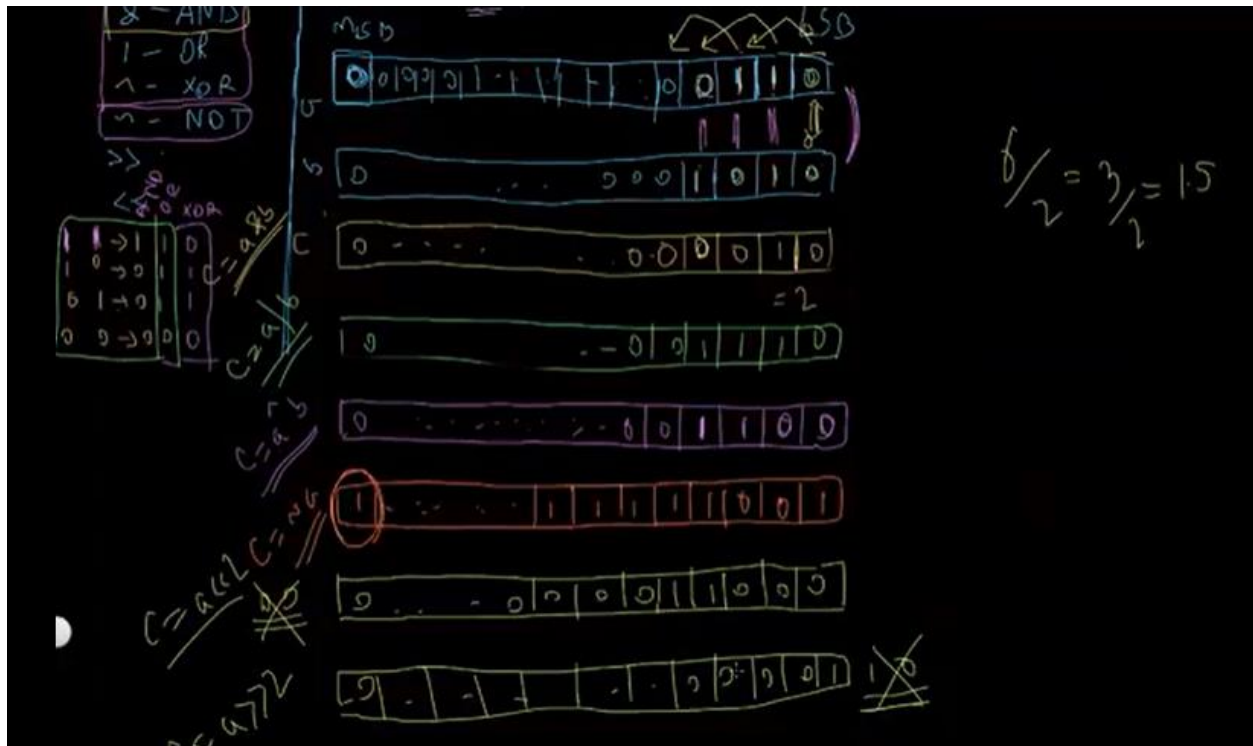 & - AND
| - OR
^ - XOR
~ - NOT
>>
<<
AND OR XOR
1 1 → 1 1 0
1 0 → 0 1 1
0 1 → 0 1 1
0 0 → 0 0 0
MSB LSB
0 0 0 1 1 0
b 0 ... 0 0 0 1 0 1 0
C = a & b
C 0 - - - - . . . 0 . 0 0 0 1 0
= 2
C = a | b
0 . - 0 0 1 1 1 0
C = a ^ b
0 . . . . . 0 0 1 1 0 0
1 . . . . 1 1 1 1 1 0 0 1
C = a << 2
0 0
0 . . - 0 0 0 0 1 1 0 0 0
= a >> 2
0 . - - . . 0 0 0 0 1 1 0
6/2 = 3/2 = 1.5